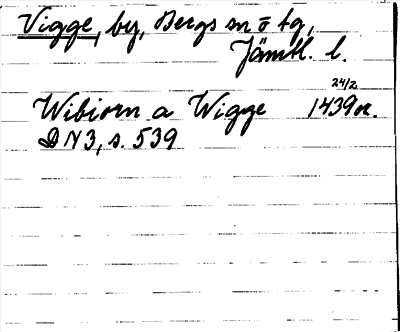 Vigge, by, Bergs sn o tg,
Jämtl. l.
24/2
Wibiorn a Wigge 1439 or.
DN3, s. 539